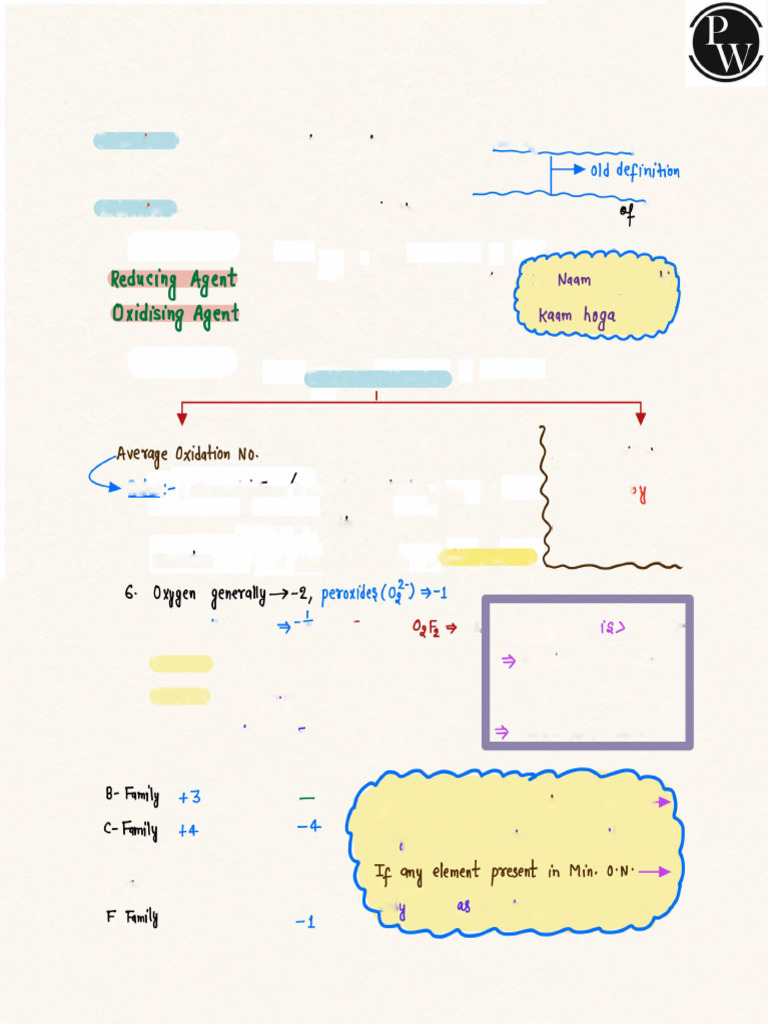 PW
Old definition
of
Reducing Agent
Naam
Oxidising Agent
Kaam hoga
Average Oxidation No.
:-
6. Oxygen generally → -2, peroxides (O₂²⁻) ⇒ -1
O₂F₂ ⇒
is>
⇒
⇒
B- Family +3 -
C- Family +4 -4
If any element present in Min. O.N. →
y as
F Family -1